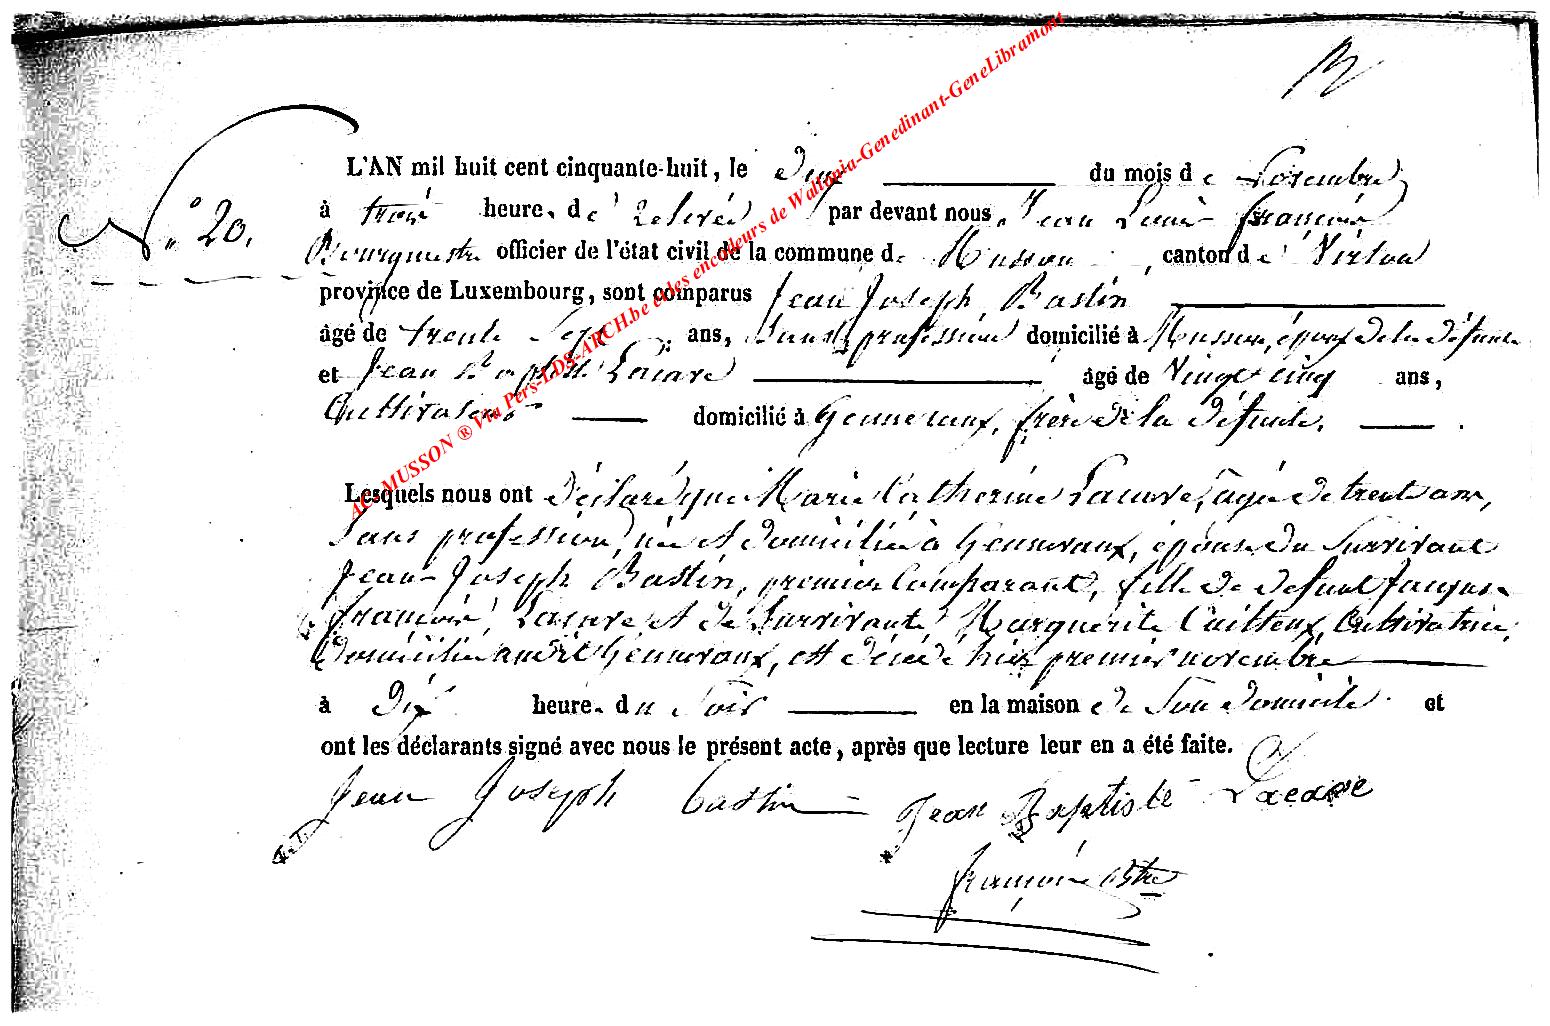 N° 20.
L'AN mil huit cent cinquante-huit, le deux du mois de Novembre
à trois heures de relevée par devant nous Jean Louis François
Bourgmestre officier de l'état civil de la commune de Musson, canton de Virton
province de Luxembourg, sont comparus Jean Joseph Bastin
âgé de trente sept ans, sans profession domicilié à Musson, époux de la défunte
et Jean Baptiste Lacave âgé de vingt cinq ans,
Cultivateur domicilié à Gennevaux, frère de la défunte.
Lesquels nous ont déclaré que Marie Catherine Lacave, agée de trente ans,
sans profession, née et domiciliée à Gennevaux, épouse du survivant
Jean Joseph Bastin, premier comparant, fille de defunt Jacques
françois Lacave et de survivante Marguerite Cuitteux, Cultivatrice,
domiciliée audit Gennevaux, est décédée hier premier novembre
à dix heures du soir en la maison de son domicile et
ont les déclarants signé avec nous le présent acte, après que lecture leur en a été faite.
Jean Joseph Bastin Jean Baptiste Lacave
françois Bstre
AC-MUSSON ® Via Pers-LDS-ARCH.be et les encodeurs de Wallonia-Genedinant-GeneLibramont